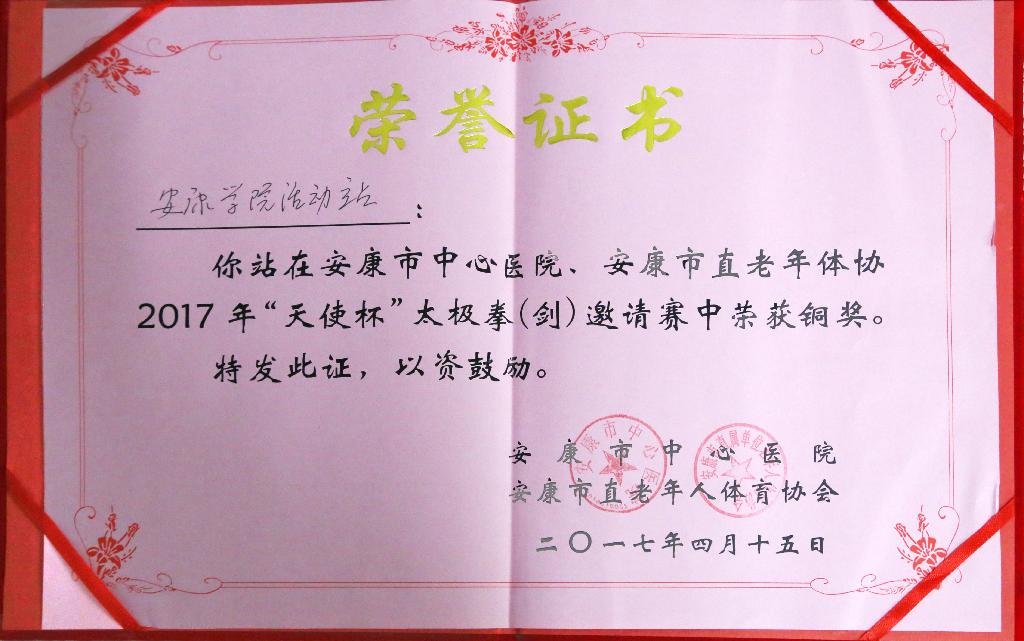 荣誉证书
安康学院活动站：
你站在安康市中心医院、安康市直老年体协
2017年“天使杯”太极拳(剑)邀请赛中荣获铜奖。
特发此证，以资鼓励。
安康市中心医院
安康市直老年人体育协会
二〇一七年四月十五日
安康市中心医